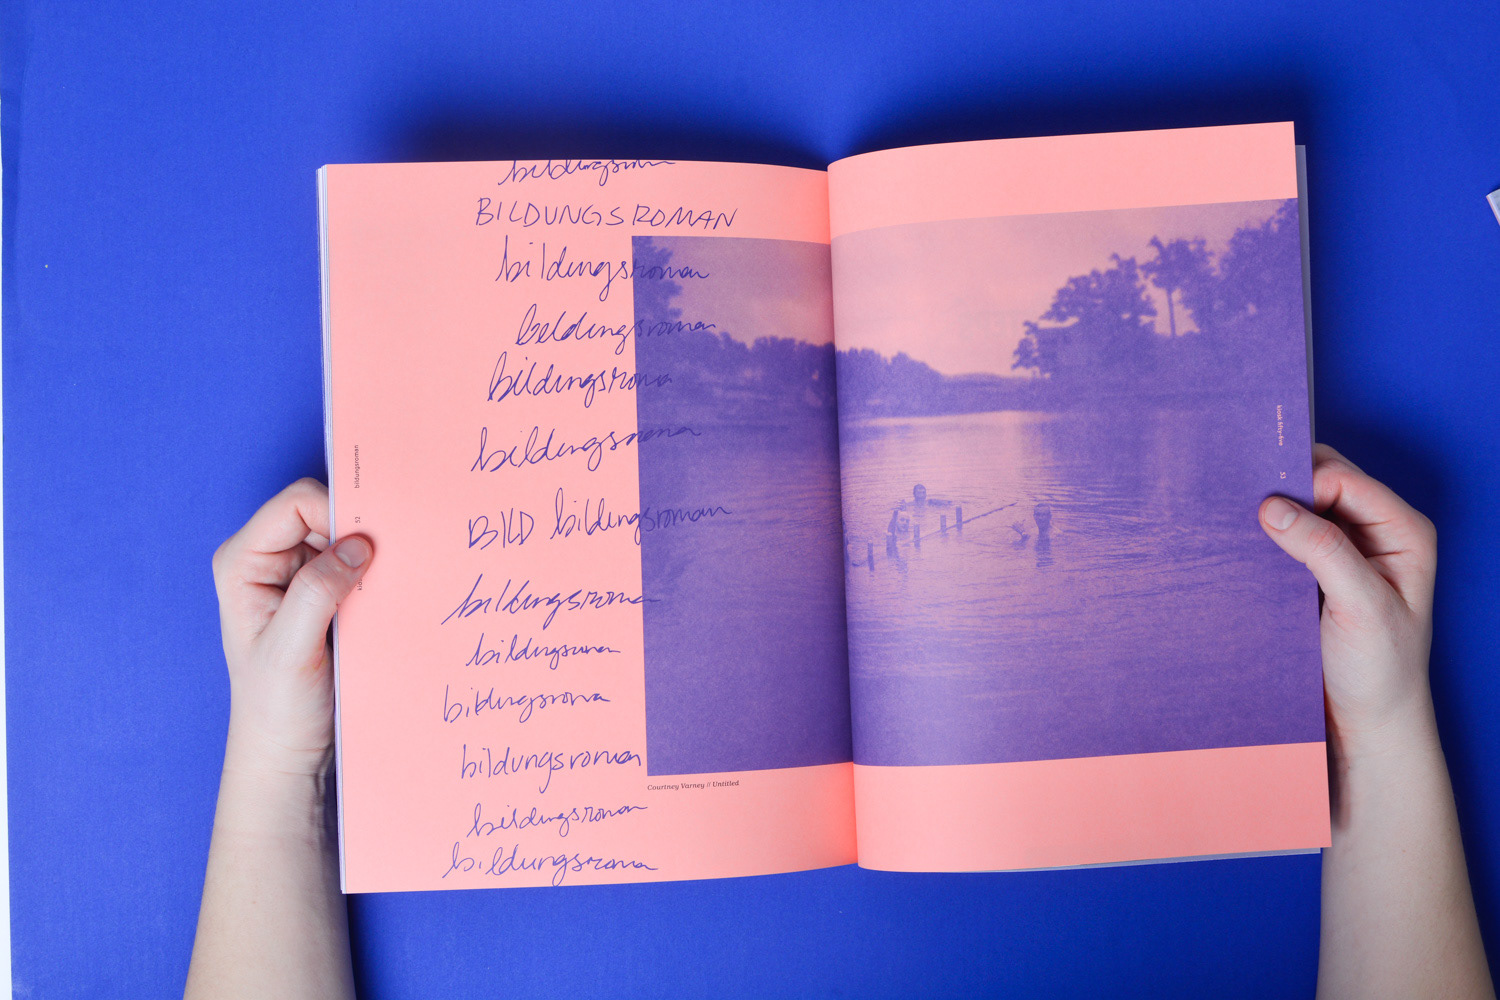 bildungsroman
BILDUNGSROMAN
bildungsroman
beldungsroman
bildungsroma
bildungsroma
BILD bildungsroman
bildungsroman
bildungsroman
bildungsroma
bildungsroman
bildungsroman
bildungsroma
Courtney Varney // Untitled
bildungsroman
52
kiosk fifty-five
53